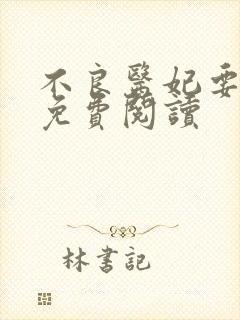 不良醫妃要
免費閱讀
林書記